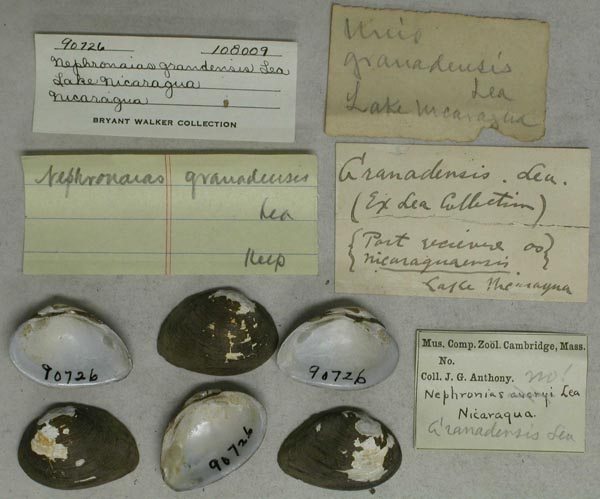 90726 108009
Nephronaias grandensis Lea
Lake Nicaragua
Nicaragua
BRYANT WALKER COLLECTION
Unio
granadensis
Lea
Lake Nicaragua
Nephronaias granadensis
Lea
Keep
Granadensis. Lea.
(Ex Lea Collection)
{Part as}
nicaraguaensis
Lake Nicaragua
Mus. Comp. Zoöl. Cambridge, Mass.
No.
Coll. J. G. Anthony. no!
Nephronias Lea
Nicaragua.
Granadensis Lea
90726
90726
90726